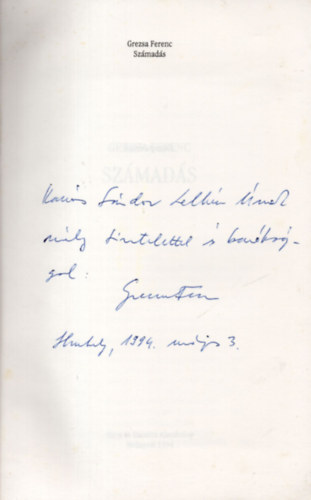 Grezsa Ferenc
Számadás
SZÁMADÁS
Kovács Sándor Lelkész Úrnak
mély tisztelettel és barátság-
gal:
Grezsa Ferenc
1994. május 3.